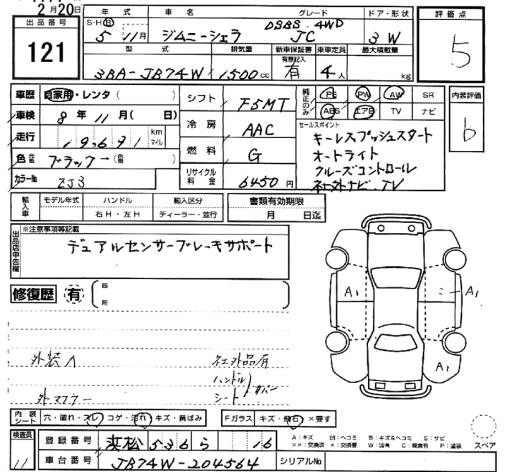 2月20日
出品番号
121
年式 車名 グレード ドア・形状
S・H(R) 5 11月 ジムニーシエラ DSBS 4WD JC 3 W
型式 排気量 新車保証書 乗車定員 最大積載量
3BA-JB74W 1500cc 有無記入 有 4人 kg
評価点
5
車歴 自家用・レンタ( )
車検 8年11月( 日)
走行 km マイル
色 ブラック→(色替)
カラーNo. ZJ3
シフト F5MT
冷房 AAC
燃料 G
リサイクル料金 6450円
純正のみ PS PW AW SR
ABS エアB TV ナビ
セールスポイント
キーレスプッシュスタート
オートライト
クルーズコントロール
社外ナビ.TV
内装評価
b
輸入車 モデル年式 ハンドル 輸入区分
右H・左H ディーラー・並行
書類有効期限
月 日迄
出品店申告欄
※注意事項等記載
デュアルセンサーブレーキサポート
修復歴 有 箇所
A1 A1
A1
外装A 社外品有
ハンドル
外マフラー シートカバー
内装シート 穴・破れ・スレ コゲ・汚れ・キズ・黄ばみ Fガラス キズ・飛石 ×要す
検査員 11
登録番号 浜松 536 ら 16
車台番号 JB74W-204564 シリアルNo
スペア